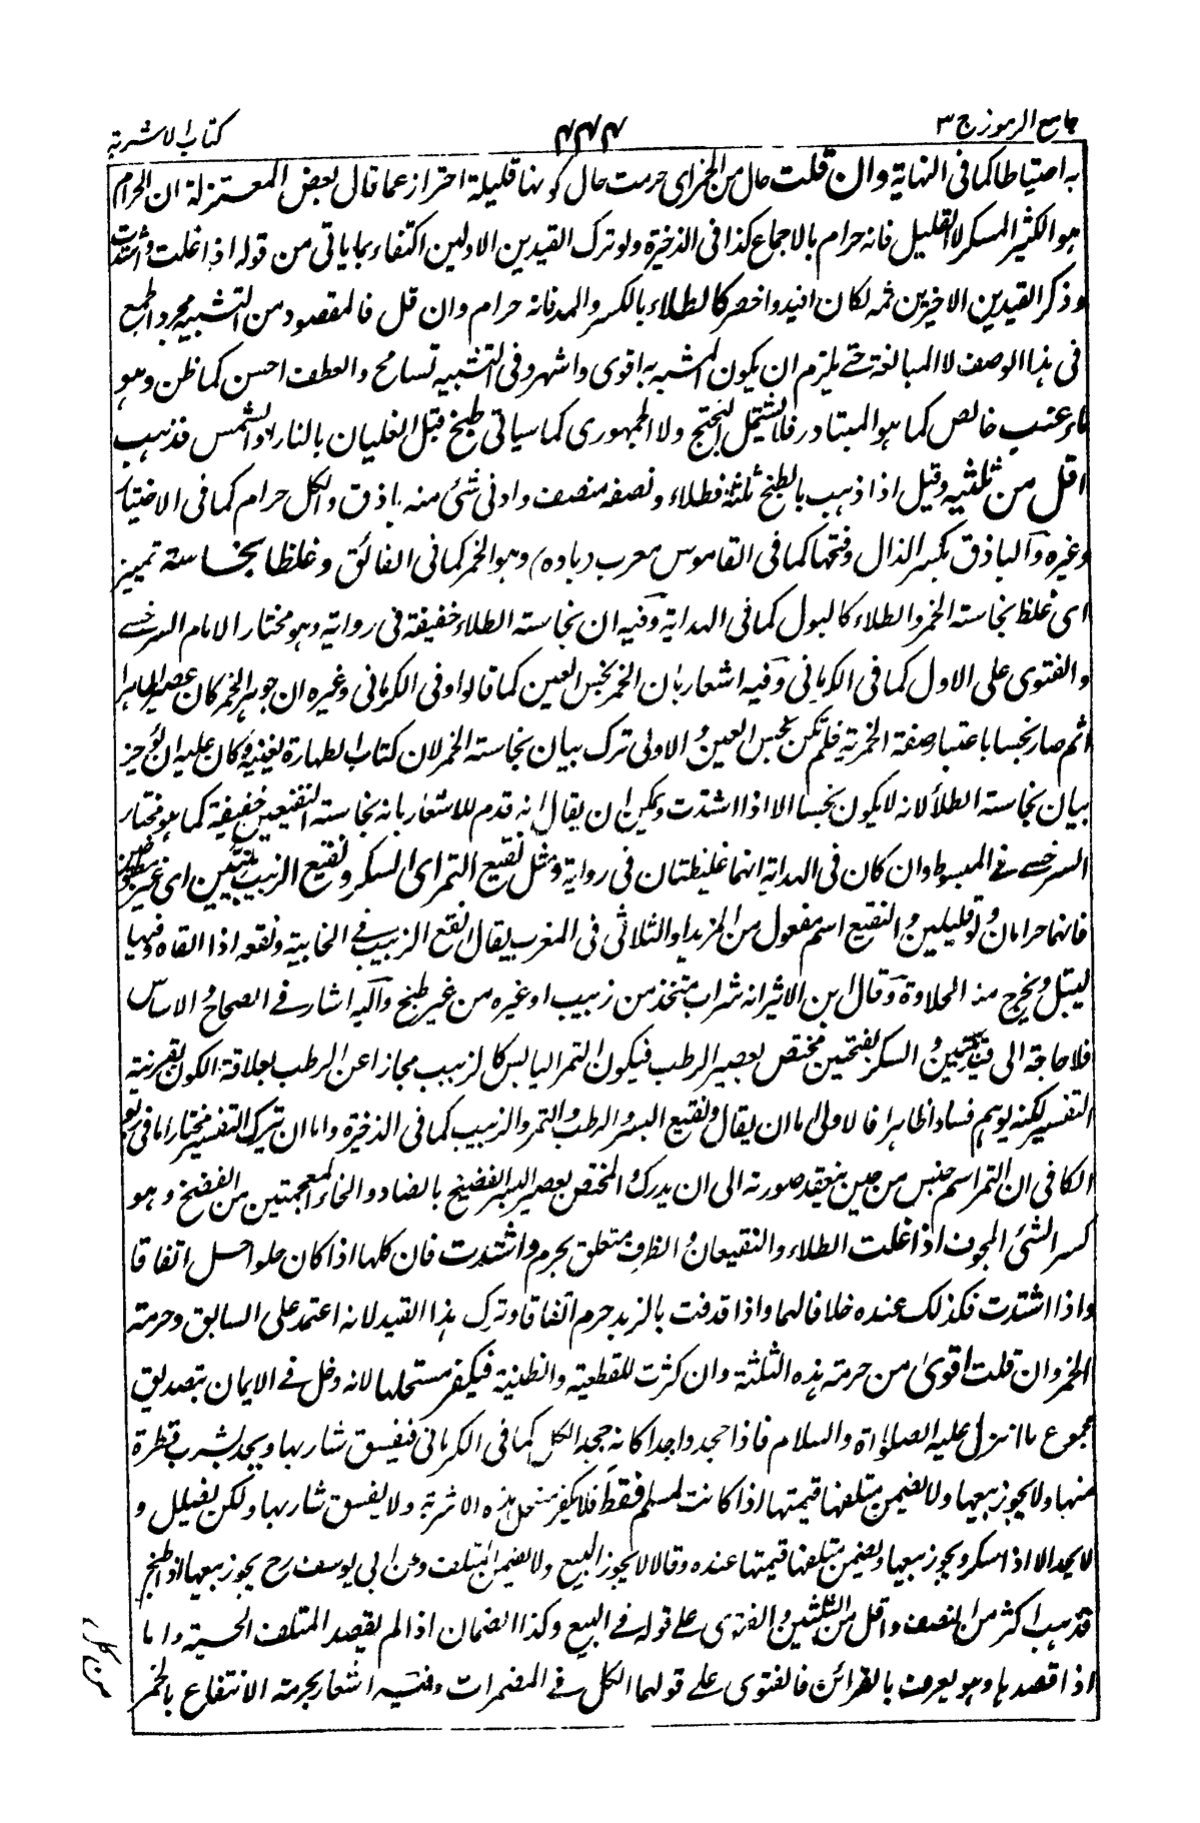 جامع الرموز ج ۳
۴۴۴
كتاب الاشربة
به احتياطا كما فى النهاية وان قلت حال من الخمر اى حرمت حال كونها قليلة احتراز عما قال بعض المعتزلة ان الحرام
هو الكثير المسكر لا القليل فانه حرام بالاجماع كذا فى الذخيرة ولو ترك القيدين الاولين اكتفاء بما ياتى من قوله اذا غلت واشتدت
وذكر القيدين الاخيرين ثمه لكان افيد واخصر كالطلاء بالكسر والمد فانه حرام وان قل فالمقصود من التشبيه مجرد الجمع
فى هذا الوصف لا المبالغة حتى يلزم ان يكون المشبه به اقوى واشهر وفى التشبيه تسامح والعطف احسن كما ظن وهو
ماء عنب خالص كما هو المتبادر فلا يشتمل البختج ولا الجمهورى كما سياتى طبخ قبل الغليان بالنار او الشمس فذهب
اقل من ثلثيه وقيل اذا ذهب بالطبخ ثلثه فطلاء ونصفه منصف وادنى شئ منه باذق والكل حرام كما فى الاختيار
وغيره والباذق بكسر الذال وفتحها كما فى القاموس معرب (باده) وهو الخمر كما فى الفائق وغلظا نجاسة تمييز
اى غلظ نجاسة الخمر والطلاء كالبول كما فى الهداية وفيه ان نجاسة الطلاء خفيفة فى رواية وهو مختار الامام السرخسى
والفتوى على الاول كما فى الكرمانى وفيه اشعار بان الخمر نجس العين كما قالوا وفى الكرمانى وغيره ان جوهر الخمر كان عصيرا طاهرا
ثم صار نجسا باعتبار صفة الخمرية فلم تكن نجس العين و الاولى ترك بيان نجاسة الخمر لان كتاب الطهارة يغنيه وكان عليه ان يؤخر
بيان نجاسة الطلاء لانه لا يكون نجسا الا اذا اشتدت ويمكن ان يقال انه قدم للاشعار بانه نجاسة النقيعين خفيفة كما هو مختار
السرخسى فى المبسوط وان كان فى الهداية انهما غليظتان فى رواية ومثل نقيع التمر اى السكر ونقيع الزبيب نيئين اى غير مطبوخين
فانهما حرامان ولو قليلين و النقيع اسم مفعول من المزيد او الثلاثى فى المغرب يقال انقع الزبيب فى الخابية ونقعه اذا القاه فيها
ليبتل ويخرج منه الحلاوة وقال ابن الاثير انه شراب متخذ من زبيب او غيره من غير طبخ واليه اشار فى الصحاح و الاساس
فلا حاجة الى قيد نيئين و السكر بفتحتين مختص بعصير الرطب فيكون التمر اليابس كالزبيب مجازا عن الرطب بعلاقة الكون بقرينة
التفسير لكنه يوهم فسادا ظاهرا فالاولى اما ان يقال ونقيع البسر والرطب والتمر والزبيب كما فى الذخيرة واما ان يترك التفسير مختارا ما فى
الكافى ان التمر اسم جنس من حين ينعقد صورته الى ان يدرك و المختص بعصير البسر الفضيخ بالضاد والخاء المعجمتين من الفضخ وهو
كسر الشئ المجوف اذا غلت الطلاء والنقيعان و الظرف متعلق بحرم واشتدت فان كلها اذا كان حلوا حل اتفاقا
واذا اشتدت فكذلك عنده خلافا لهما واذا قذفت بالزبد حرم اتفاقا وترك هذا القيد لانه اعتمد على السابق وحرمة
الخمر وان قلت اقوى من حرمة هذه الثلثة وان كثرت للقطعية والظنية فيكفر مستحلها لانه دخل فى الايمان بتصديق
مجموع ما انزل عليه الصلوة والسلام فاذا جحد واحدا كانه جحد الكل كما فى الكرمانى فيفسق شاربها ويحد بشرب قطرة
منها ولا يجوز بيعها ولا يضمن متلفها قيمتها اذا كانت لمسلم فقط فلا يكفر مستحل هذه الاشربة ولا يفسق شاربها ولكن يضلل و
لا يحد الا اذا سكر ويجوز بيعها ويضمن متلفها قيمتها عنده وقالا لا يجوز البيع ولا يضمن المتلف وعن ابى يوسف رح يجوز بيعها اذا طبخ
قد ذهب اكثر من النصف واقل من الثلثين والفتوى على قوله فى البيع وكذا الضمان اذا لم يقصد المتلف الحسبة واما
اذا قصدها وهو يعرف بالقرائن فالفتوى على قولهما الكل فى المضمرات وفيه اشعار بحرمة الانتفاع بالخمر